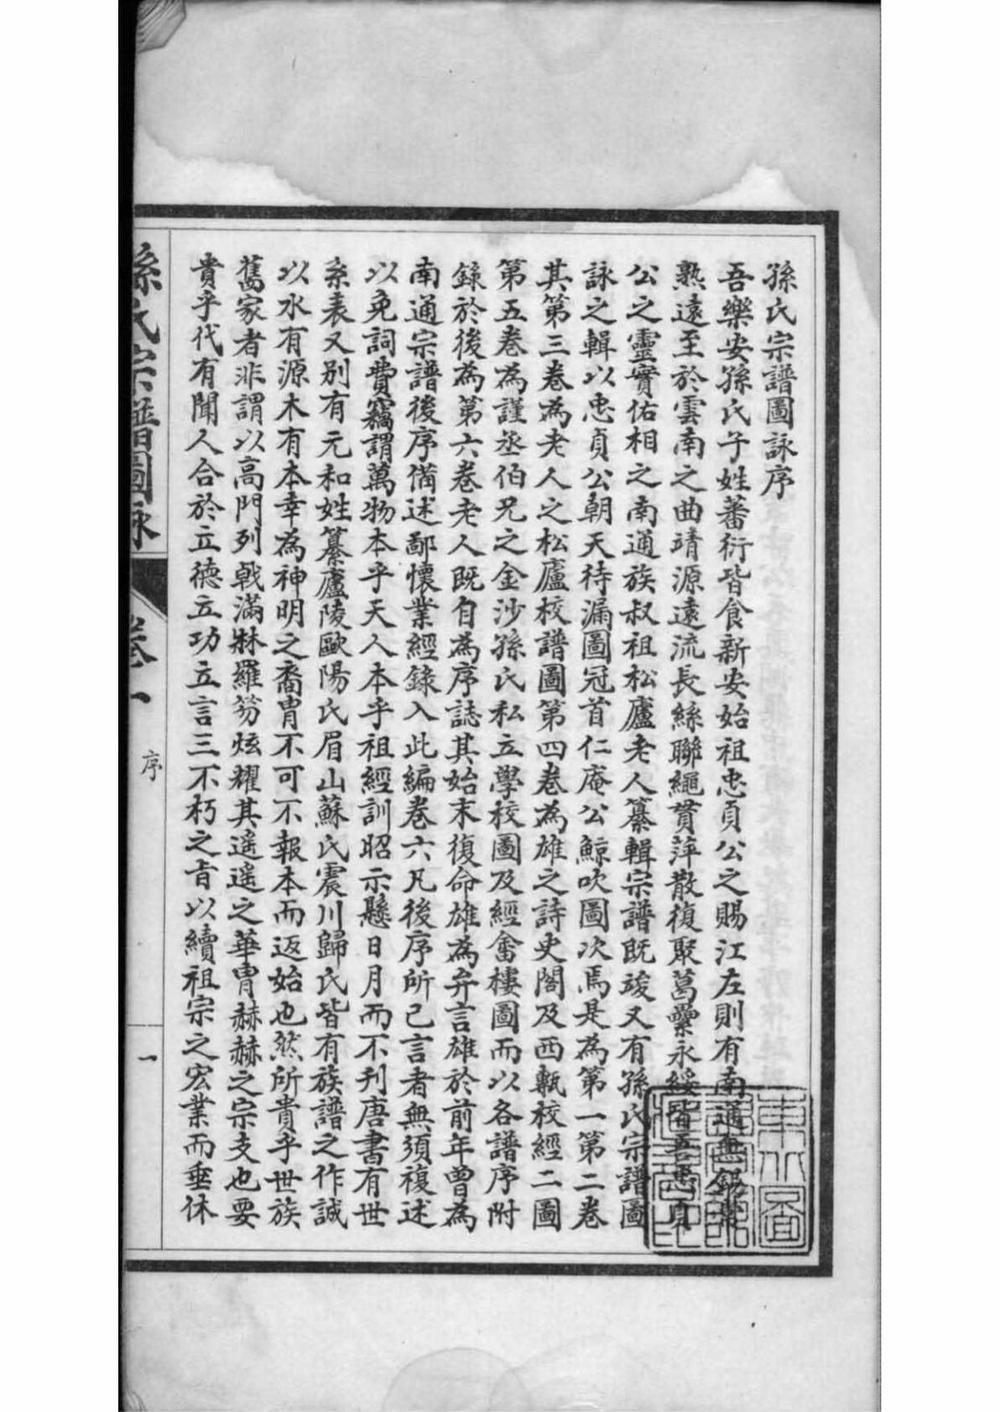 孫氏宗譜圖詠序
吾樂安孫氏子姓蕃衍皆食新安始祖忠貞公之賜江左則有南通無錫常
熟遠至於雲南之曲靖源遠流長絲聯繩貫萍散復聚葛藟永綏皆吾忠貞
公之靈實佑相之南通族叔祖松廬老人纂輯宗譜既竣又有孫氏宗譜圖
詠之輯以忠貞公朝天待漏圖冠首仁庵公鯨吹圖次焉是為第一第二卷
其第三卷為老人之松廬校譜圖第四卷為雄之詩史閣及西甎校經二圖
第五卷為謹丞伯兄之金沙孫氏私立學校圖及經畬樓圖而以各譜序附
錄於後為第六卷老人既自為序誌其始末復命雄為弁言雄於前年曾為
南通宗譜後序備述鄙懷業經錄入此編卷六凡後序所已言者無須複述
以免詞費竊謂萬物本乎天人本乎祖經訓昭示懸日月而不刊唐書有世
系表又別有元和姓纂廬陵歐陽氏眉山蘇氏震川歸氏皆有族譜之作誠
以水有源木有本幸為神明之裔胄不可不報本而返始也然所貴乎世族
舊家者非謂以高門列戟滿牀羅笏炫耀其遙遙之華胄赫赫之宗支也要
貴乎代有聞人合於立德立功立言三不朽之旨以續祖宗之宏業而垂休
孫氏宗譜圖詠
卷一
序
一